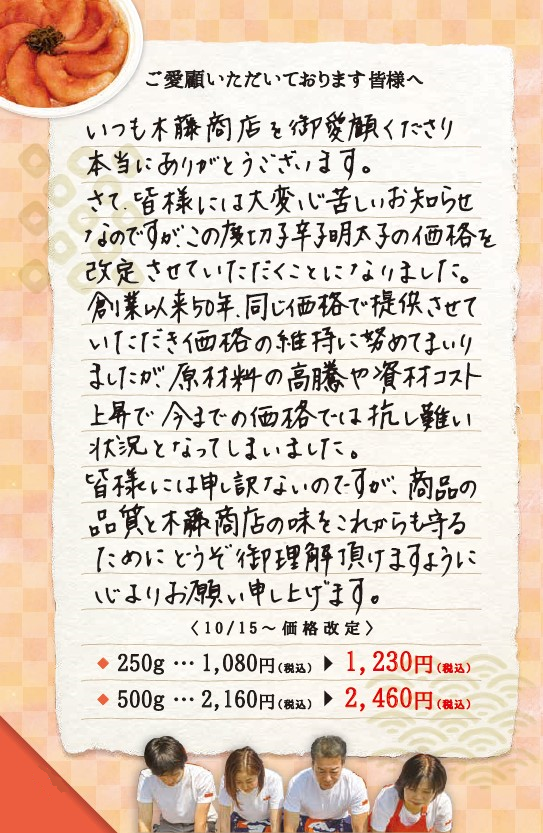 ご愛顧いただいております皆様へ
いつも木藤商店を御愛顧くださり
本当にありがとうございます。
さて、皆様には大変心苦しいお知らせ
なのですが、この度切子辛子明太子の価格を
改定させていただくことになりました。
創業以来50年、同じ価格で提供させて
いただき価格の維持に努めてまいり
ましたが、原材料の高騰や資材コスト
上昇で今までの価格では抗し難い
状況となってしまいました。
皆様には申し訳ないのですが、商品の
品質と木藤商店の味をこれからも守る
ためにどうぞ御理解頂けますように
心よりお願い申し上げます。
〈10/15～価格改定〉
◆ 250g … 1,080円(税込) ▶ 1,230円(税込)
◆ 500g … 2,160円(税込) ▶ 2,460円(税込)